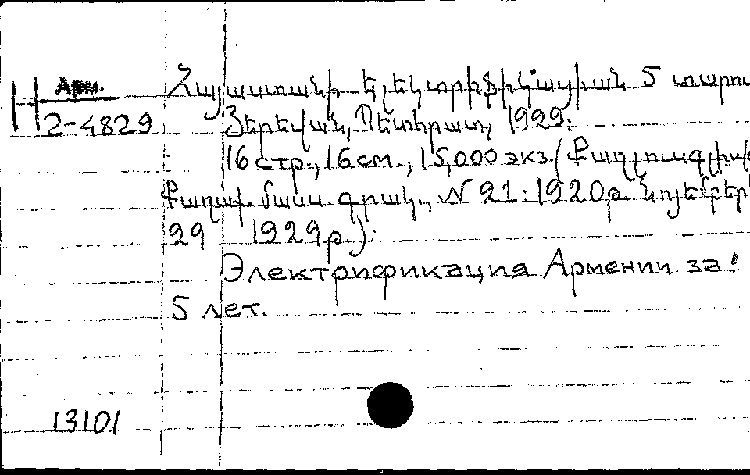 Арм.
Հայաստանի ելեկտրիֆիկացիան 5 տարում
2-4829
Յերեվան, Պետհրատ, 1929.
16 стр., 16 см., 15,000 экз. (Քաղլուսգլխ
Քաղաք. մասս. գրակ., N 21: 1920թ. նոյեմբեր
29 1929թ.):
Электрификация Армении за
5 лет.
13101